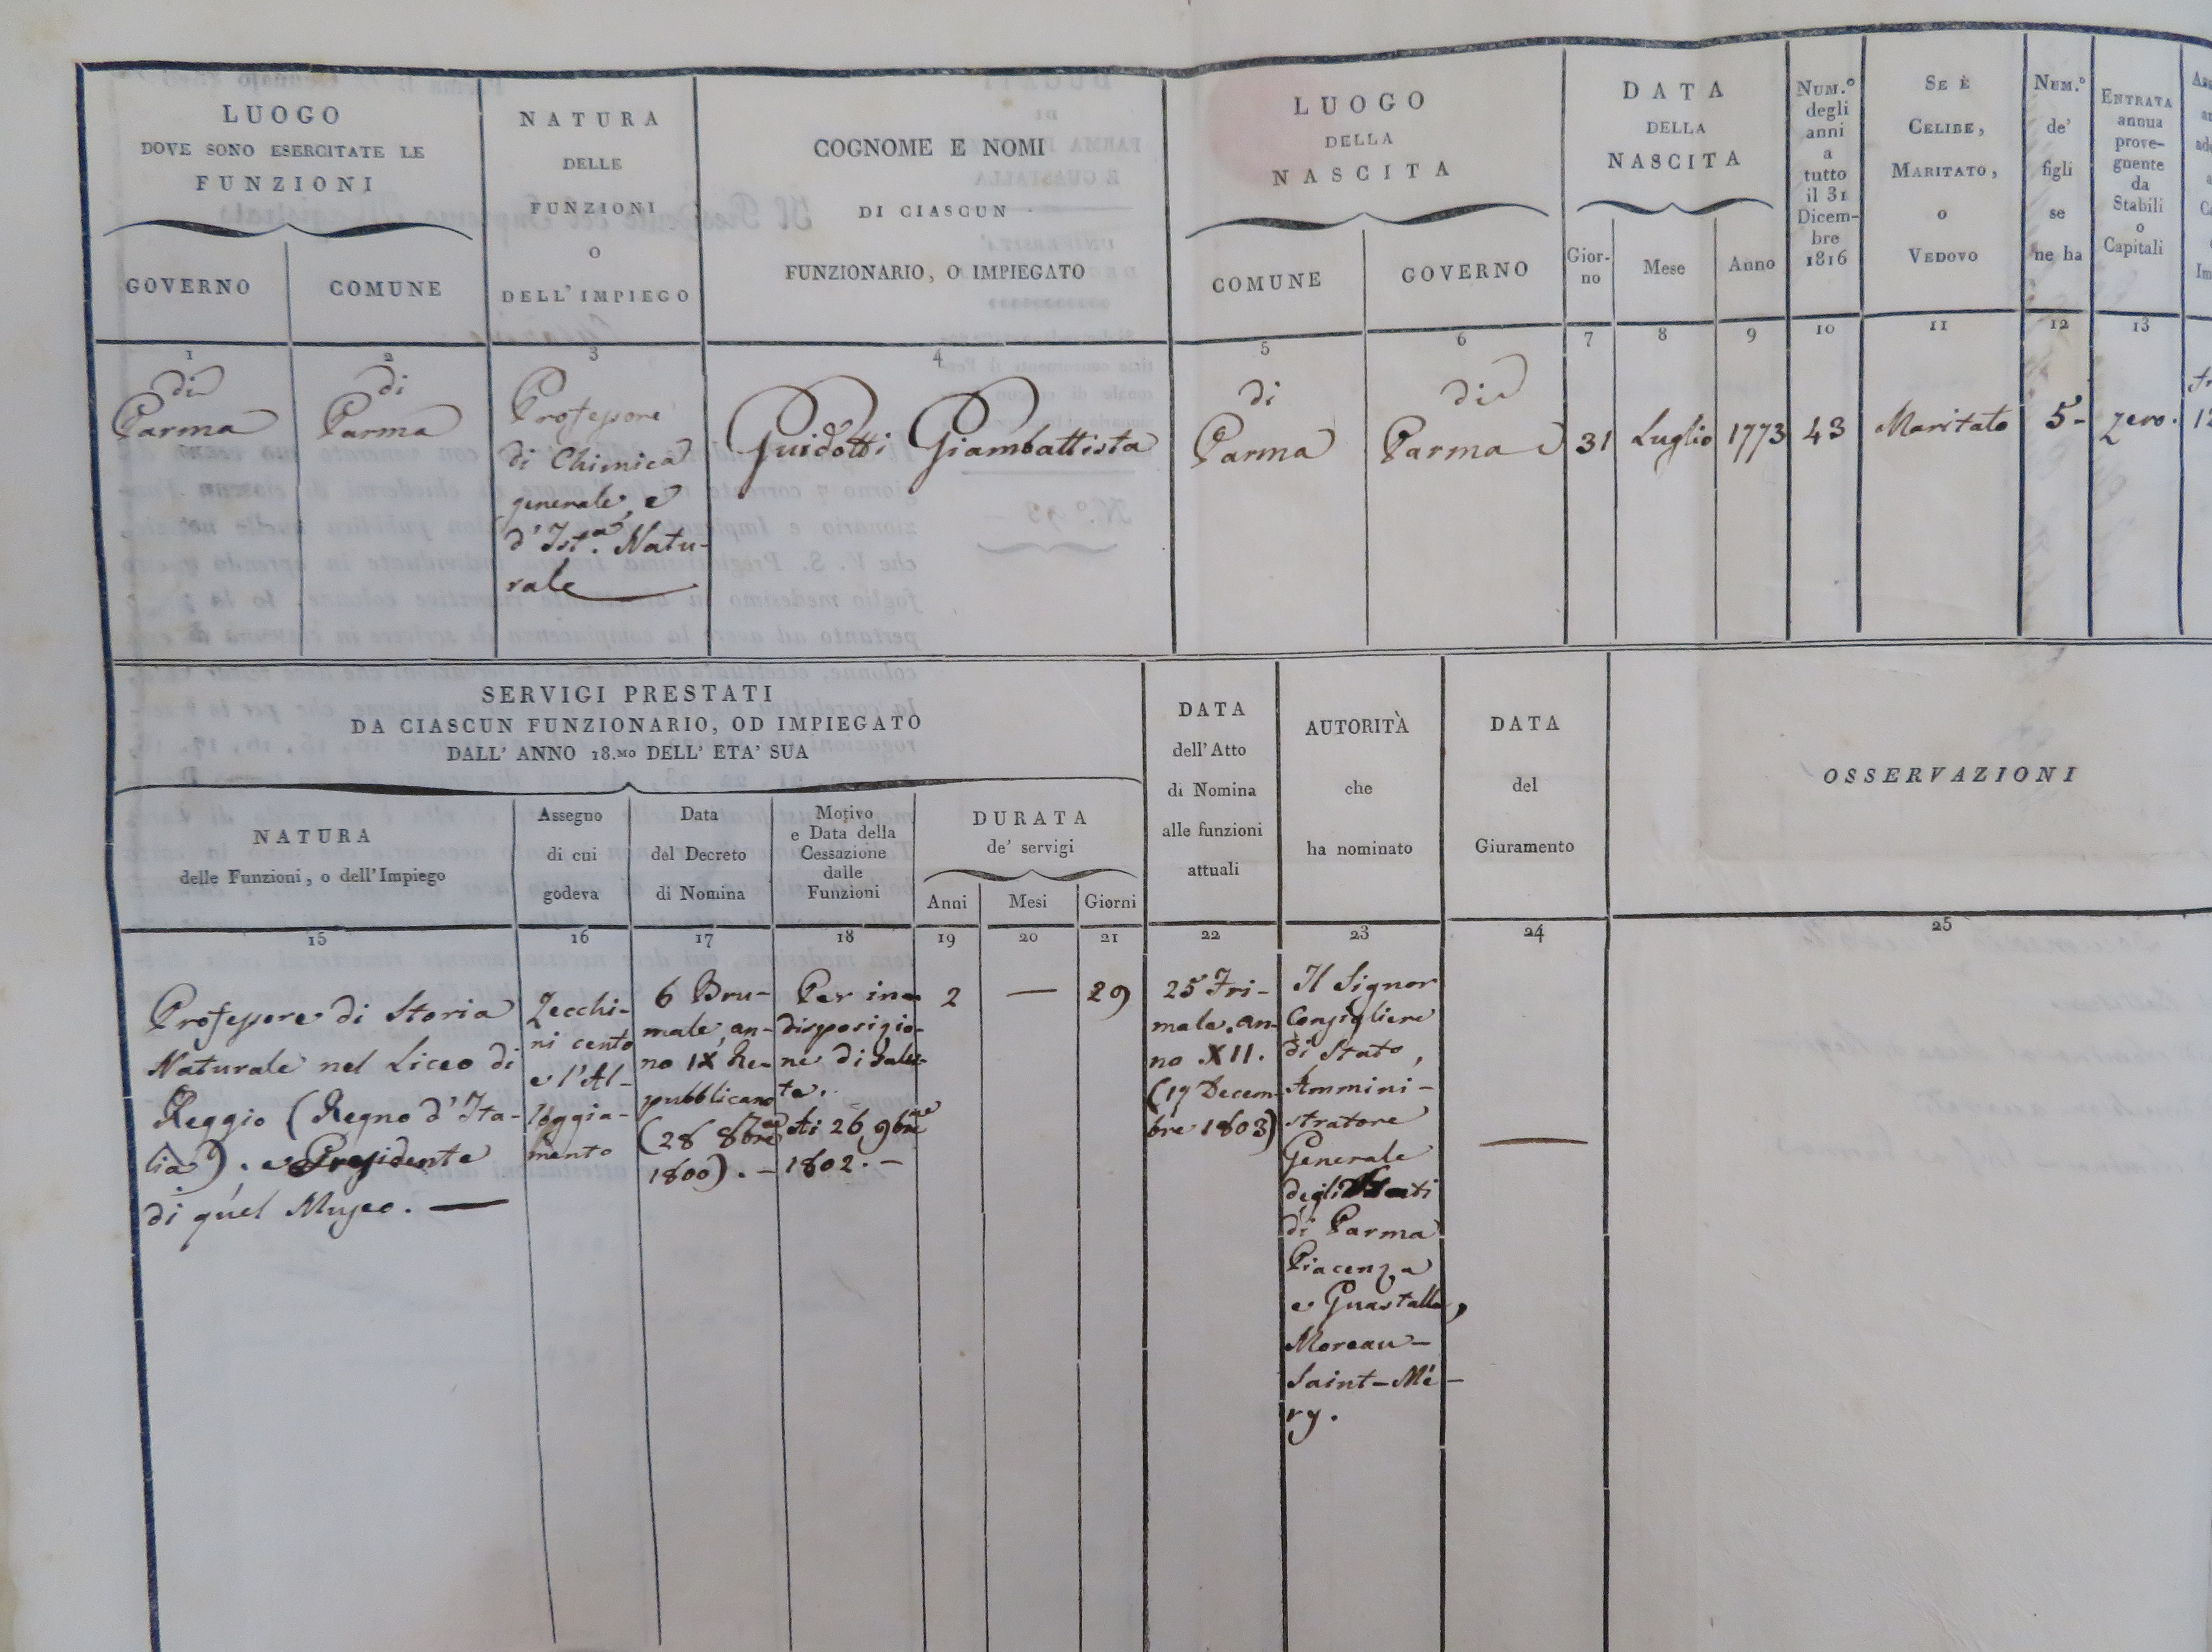 LUOGO
DOVE SONO ESERCITATE LE
FUNZIONI
GOVERNO
COMUNE
NATURA
DELLE
FUNZIONI
O
DELL' IMPIEGO
COGNOME E NOMI
DI CIASCUN
FUNZIONARIO, O IMPIEGATO
LUOGO
DELLA
NASCITA
COMUNE
GOVERNO
DATA
DELLA
NASCITA
Gior-
no
Mese
Anno
NUM.º
degli
anni
a
tutto
il 31
Dicem-
bre
1816
SE È
CELIBE,
MARITATO,
O
VEDOVO
NUM.º
de'
figli
se
ne ha
ENTRATA
annua
prove-
gnente
da
Stabili
o
Capitali
1
2
3
4
5
6
7
8
9
10
11
12
13
di
Parma
di
Parma
Professore
di Chimica
generale, e
d'Ist.ª Natu-
rale
Guidotti Giambattista
di
Parma
di
Parma
31
Luglio
1773
43
Maritato
5-
zero.
SERVIGI PRESTATI
DA CIASCUN FUNZIONARIO, OD IMPIEGATO
DALL' ANNO 18.MO DELL' ETA' SUA
NATURA
delle Funzioni, o dell'Impiego
Assegno
di cui
godeva
Data
del Decreto
di Nomina
Motivo
e Data della
Cessazione
dalle
Funzioni
DURATA
de' servigi
Anni
Mesi
Giorni
DATA
dell' Atto
di Nomina
alle funzioni
attuali
AUTORITÀ
che
ha nominato
DATA
del
Giuramento
OSSERVAZIONI
15
16
17
18
19
20
21
22
23
24
25
Professore di Storia
Naturale nel Liceo di
Reggio (Regno d'Ita-
lia). e Presidente
di quel Museo. —
Zecchi-
ni cento
e l'Al-
loggia-
mento
6 Bru-
male, an-
no IX Re-
pubblicano
(28 8bre
1800). -
Per in-
disposizio-
ne di salu-
te.
Ai 26 9bre
1802. -
2
—
29
25 Fri-
male. an-
no XII.
(17 Decem-
bre 1803)
Il Signor
Consigliere
di Stato,
Ammini-
stratore
Generale
degli Stati
di Parma
Piacenza
e Guastalla,
Moreau-
Saint-Mé-
ry.
—